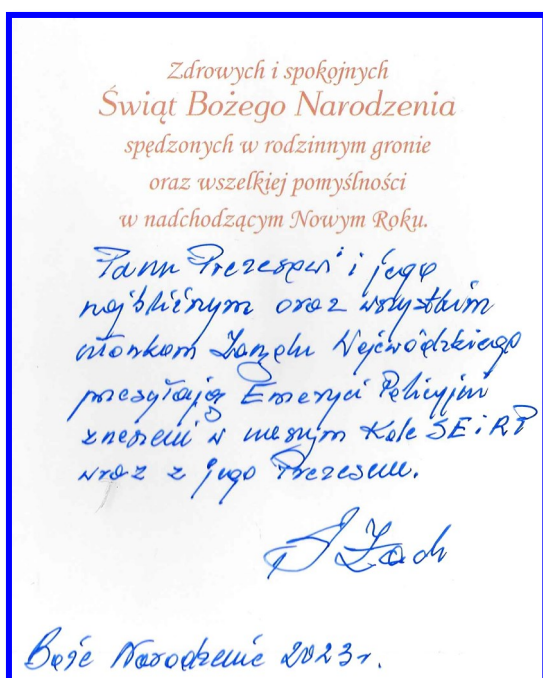 Zdrowych i spokojnych
Świąt Bożego Narodzenia
spędzonych w rodzinnym gronie
oraz wszelkiej pomyślności
w nadchodzącym Nowym Roku.
Panu Prezesowi i jego
najbliższym oraz wszystkim
członkom Zarządu Wojewódzkiego
przesyłają Emeryci Policyjni
zrzeszeni w naszym Kole SEiRP
wraz z jego Prezesem.
Boże Narodzenie 2023r.